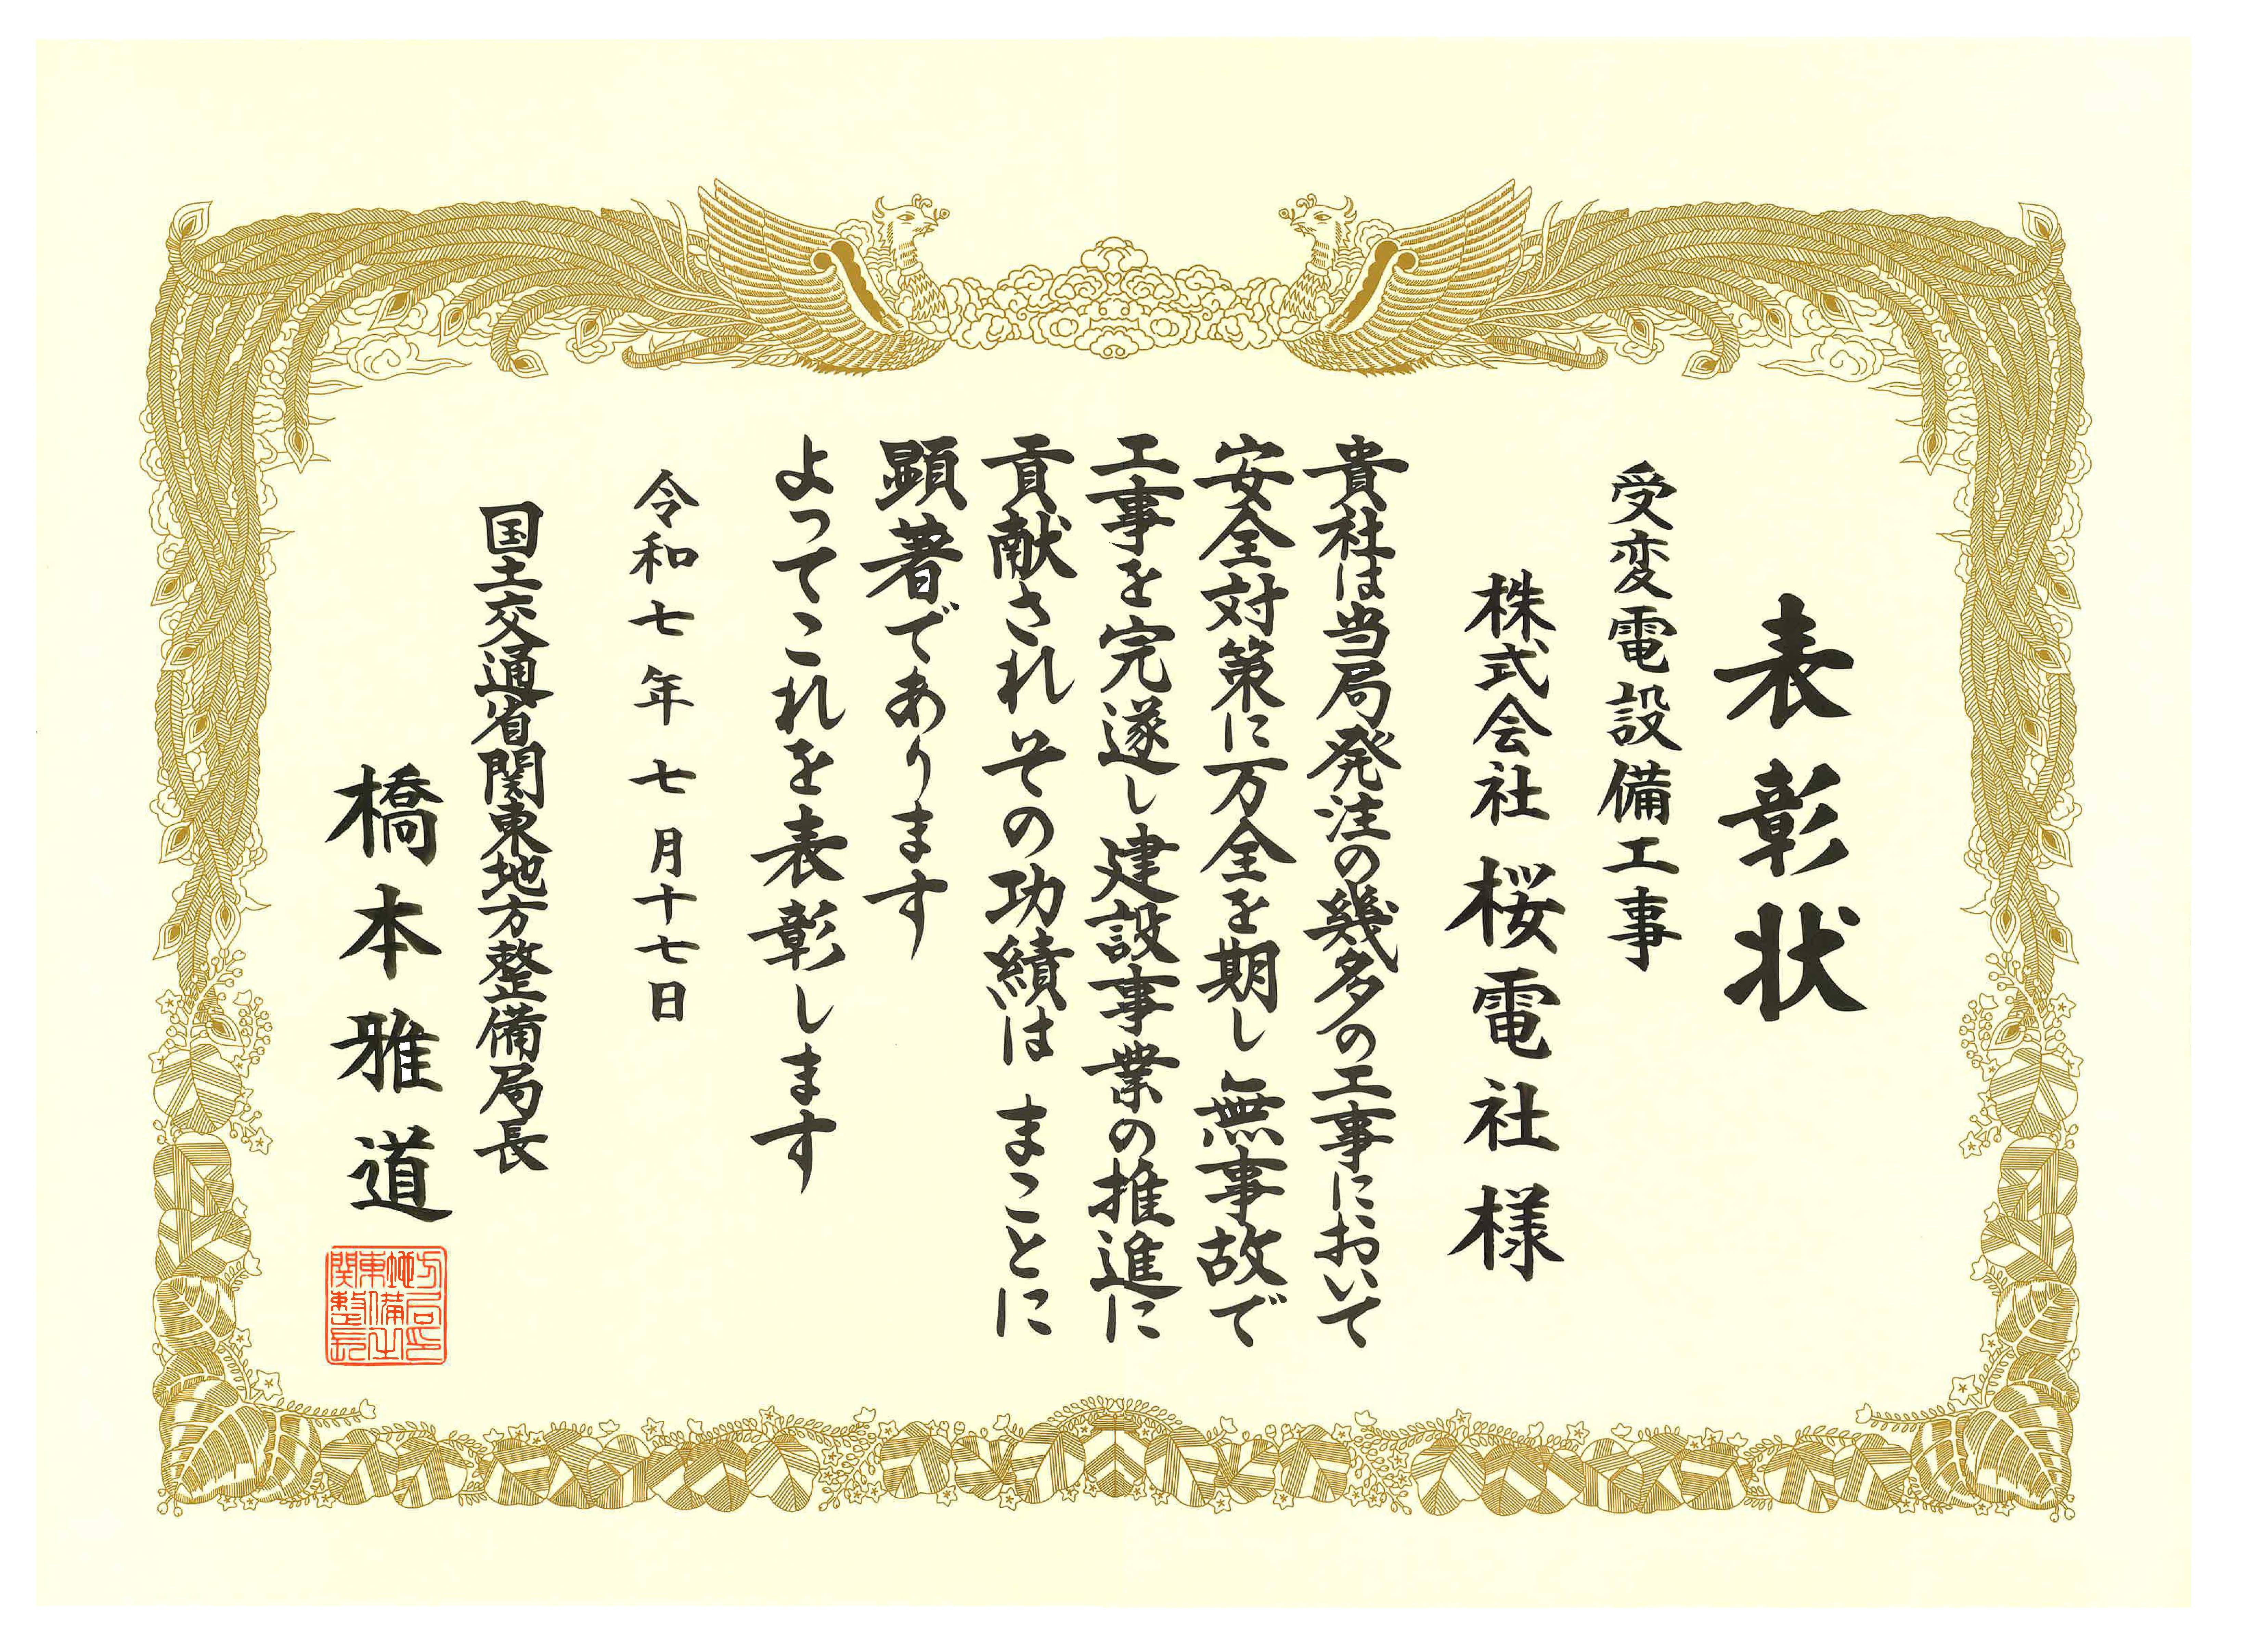 表彰状
受変電設備工事
株式会社 桜電社 様
貴社は当局発注の幾多の工事において
安全対策に万全を期し 無事故で
工事を完遂し 建設事業の推進に
貢献され その功績は まことに
顕著であります
よってこれを表彰します
令和七年七月十七日
国土交通省関東地方整備局長
橋本雅道